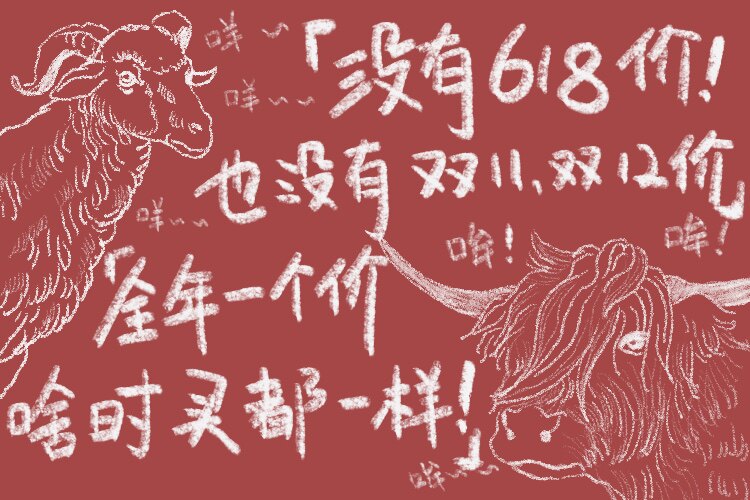 咩~
「没有618价!
咩~~
也没有双11、双12价」
咩~~
哞!
哞!
「全年一个价
啥时买都一样!」
哞~~